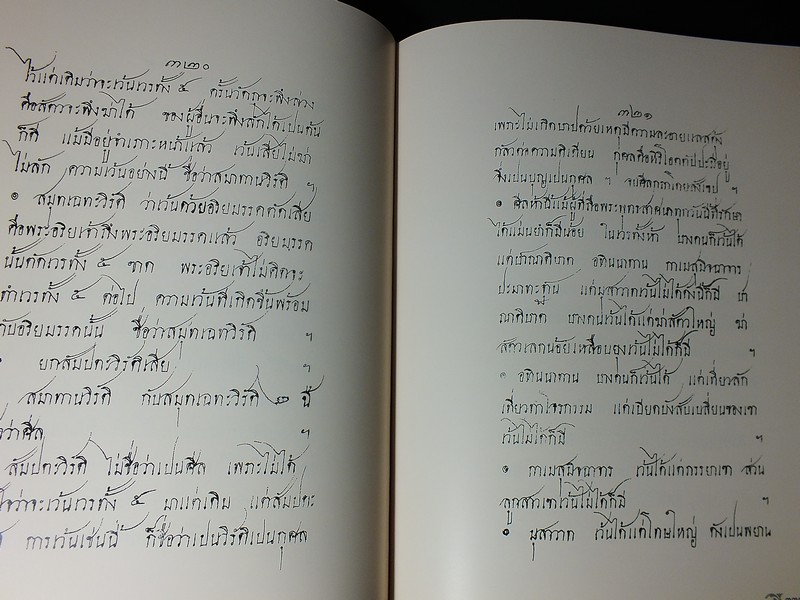 ๓๒๐
ไว้แต่เดิมว่าจะเว้นเวรทั้ง ๕ ครั้นวัตถุจะพึงล่วง
คือสัตวจะพึงฆ่าได้ ของผู้อื่นจะพึงลักได้เปนต้น
ก็ดี แม้มีอยู่จำเภาะหน้าแล้ว เว้นเสียไม่ฆ่า
ไม่ลัก ความเว้นอย่างนี้ ชื่อว่าสมาทานวิรัติ ฯ
๏ สมุทเฉทวิรัติ ว่าเว้นด้วยอริยมรรคตัดเสีย
คือพระอริยเจ้าถึงพระอริยมรรคแล้ว อริยมรรค
นั้นตัดเวรทั้ง ๕ ขาด พระอริยเจ้าไม่คิดจะ
ทำเวรทั้ง ๕ ต่อไป ความเว้นที่เกิดขึ้นพร้อม
กับอริยมรรคนั้น ชื่อว่าสมุทเฉทวิรัติ ฯ
ยกสัมปตะวิรัติเสีย
สมาทานวิรัติ กับสมุทเฉทะวิรัติ ๒ นี้
ว่าศีล ฯ
สัมปตะวิรัติ ไม่ชื่อว่าเปนศีล เพราะไม่ได้
ว่าจะเว้นเวรทั้ง ๕ มาแต่เดิม แต่สัมปตะ
การเว้นเช่นนี้ ก็ชื่อว่าเปนวิรัติเปนกุศล
๓๒๑
เพราะไม่เกิดบาปด้วยเหตุมีความละอายแลสดุ้ง
กลัวต่อความติเตียน กุศลคือหิริโอตตัปปะมีอยู่
จึ่งเปนบุญเปนกุศล ฯ จบศีลกถาโดยสังเขป ฯ
๏ ศีลห้านี้แม้ผู้ที่ถือพระพุทธสาศนาทุกวันนี้ที่รักษา
ได้แม่นยำก็มีน้อย ในเวรทั้งห้า บางคนก็เว้นได้
แต่ปาณาติบาต อทินนาทาน กาเมสุมิจฉาจาร
ประมาทะฐาน แต่มุสาวาทเว้นไม่ได้ดังนี้ก็มี ปา
ณาติบาต บางคนเว้นได้แต่ฆ่าสัตวใหญ่ ฆ่า
สัตวเลกน้อยเหลือบยุงเว้นไม่ได้ก็มี ฯ
๏ อทินนาทาน บางคนก็เว้นได้ แต่เที่ยวลัก
เที่ยวทำโจรกรรม แต่เบียดบังสับเปลี่ยนของเขา
เว้นไม่ได้ก็มี ฯ
๏ กาเมสุมิจฉาจาร เว้นได้แต่ภรรยาเขา ส่วน
ลูกสาวเขาเว้นไม่ได้ก็มี ฯ
๏ มุสาวาท เว้นได้แต่โทษใหญ่ ดังเปนพยาน